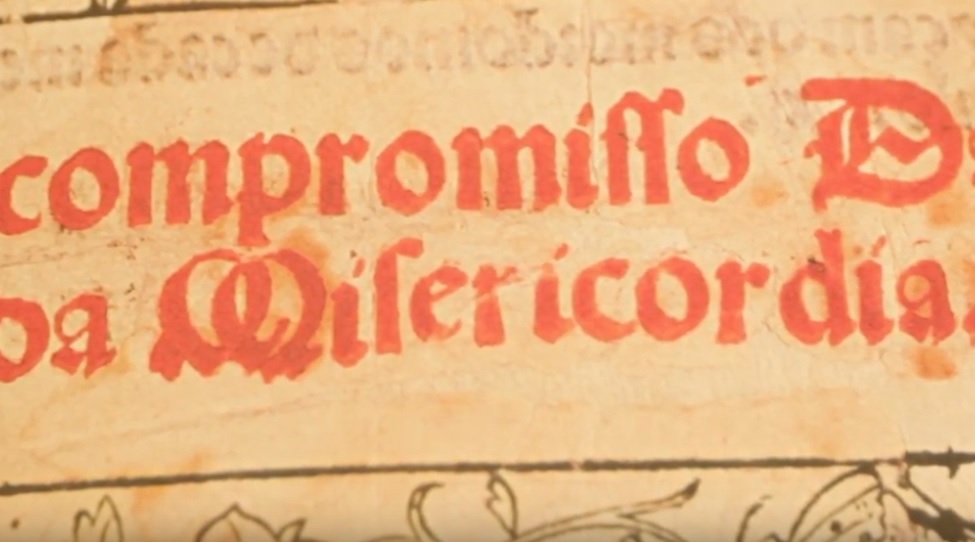 compromiſſo
da Miſericordia.